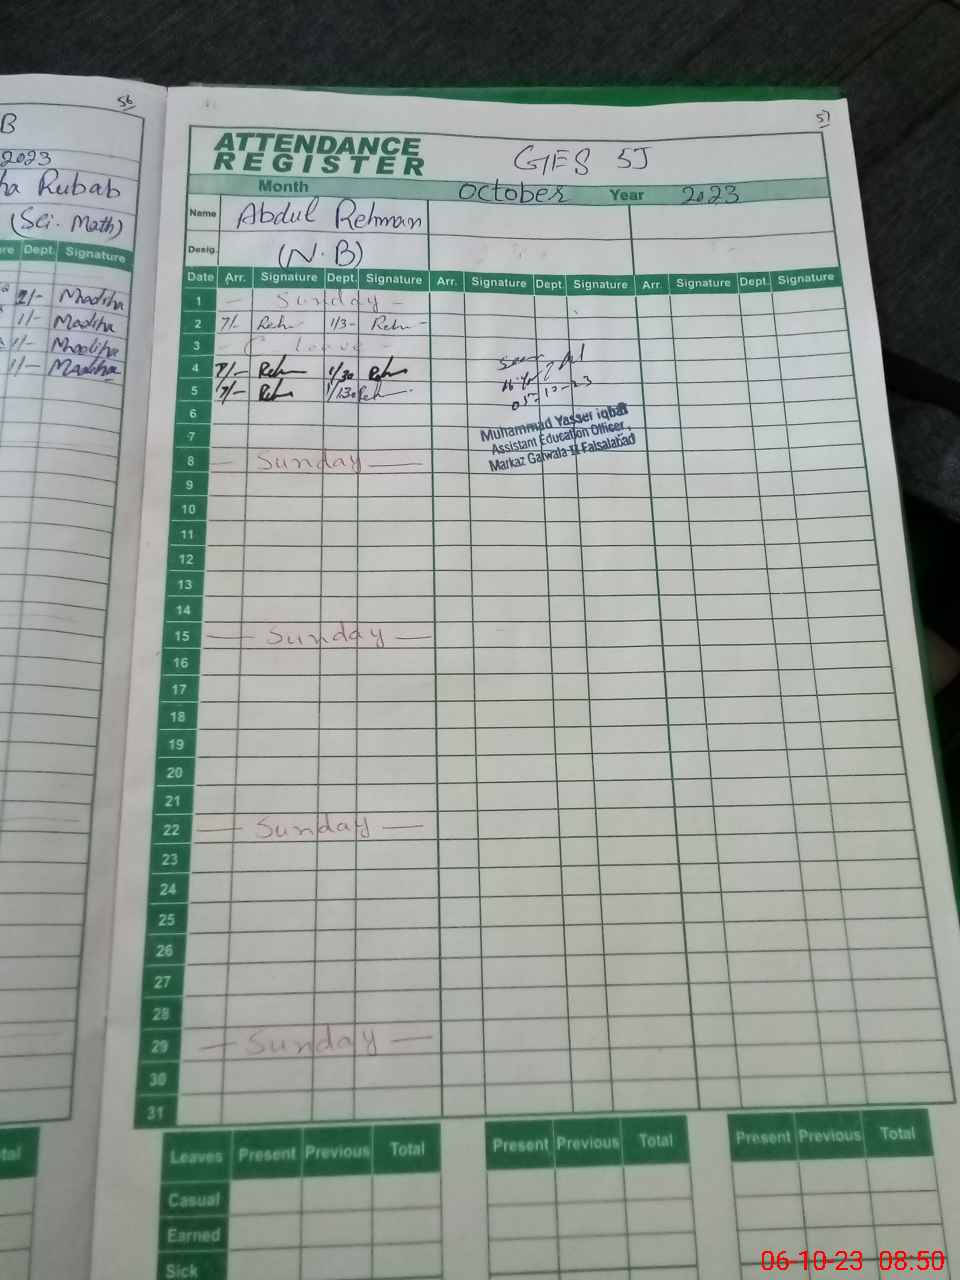 56
B
2023
ha Rubab
(Sci. Math)
re Dept. Signature
2/- Madiha
1/- Madiha
1/- Madiha
1/- Madiha
tal
57
ATTENDANCE
REGISTER
GES 5J
Month October Year 2023
Name Abdul Rehman
Desig. (N.B)
Date Arr. Signature Dept. Signature Arr. Signature Dept. Signature Arr. Signature Dept. Signature
1 — Sunday —
2 7/- Reh 1/3- Reh
3 — C leave —
4 7/- Reh 1/30 Reh
5 7/- Reh 1/30 Reh
05-10-23
6
Muhammad Yasser iqbal
Assistant Education Officer,
Markaz Gatwala-II Faisalabad
7
8 — Sunday —
9
10
11
12
13
14
15 — Sunday —
16
17
18
19
20
21
22 — Sunday —
23
24
25
26
27
28
29 — Sunday —
30
31
Leaves Present Previous Total Present Previous Total Present Previous Total
Casual
Earned
Sick
06-10-23 08:50